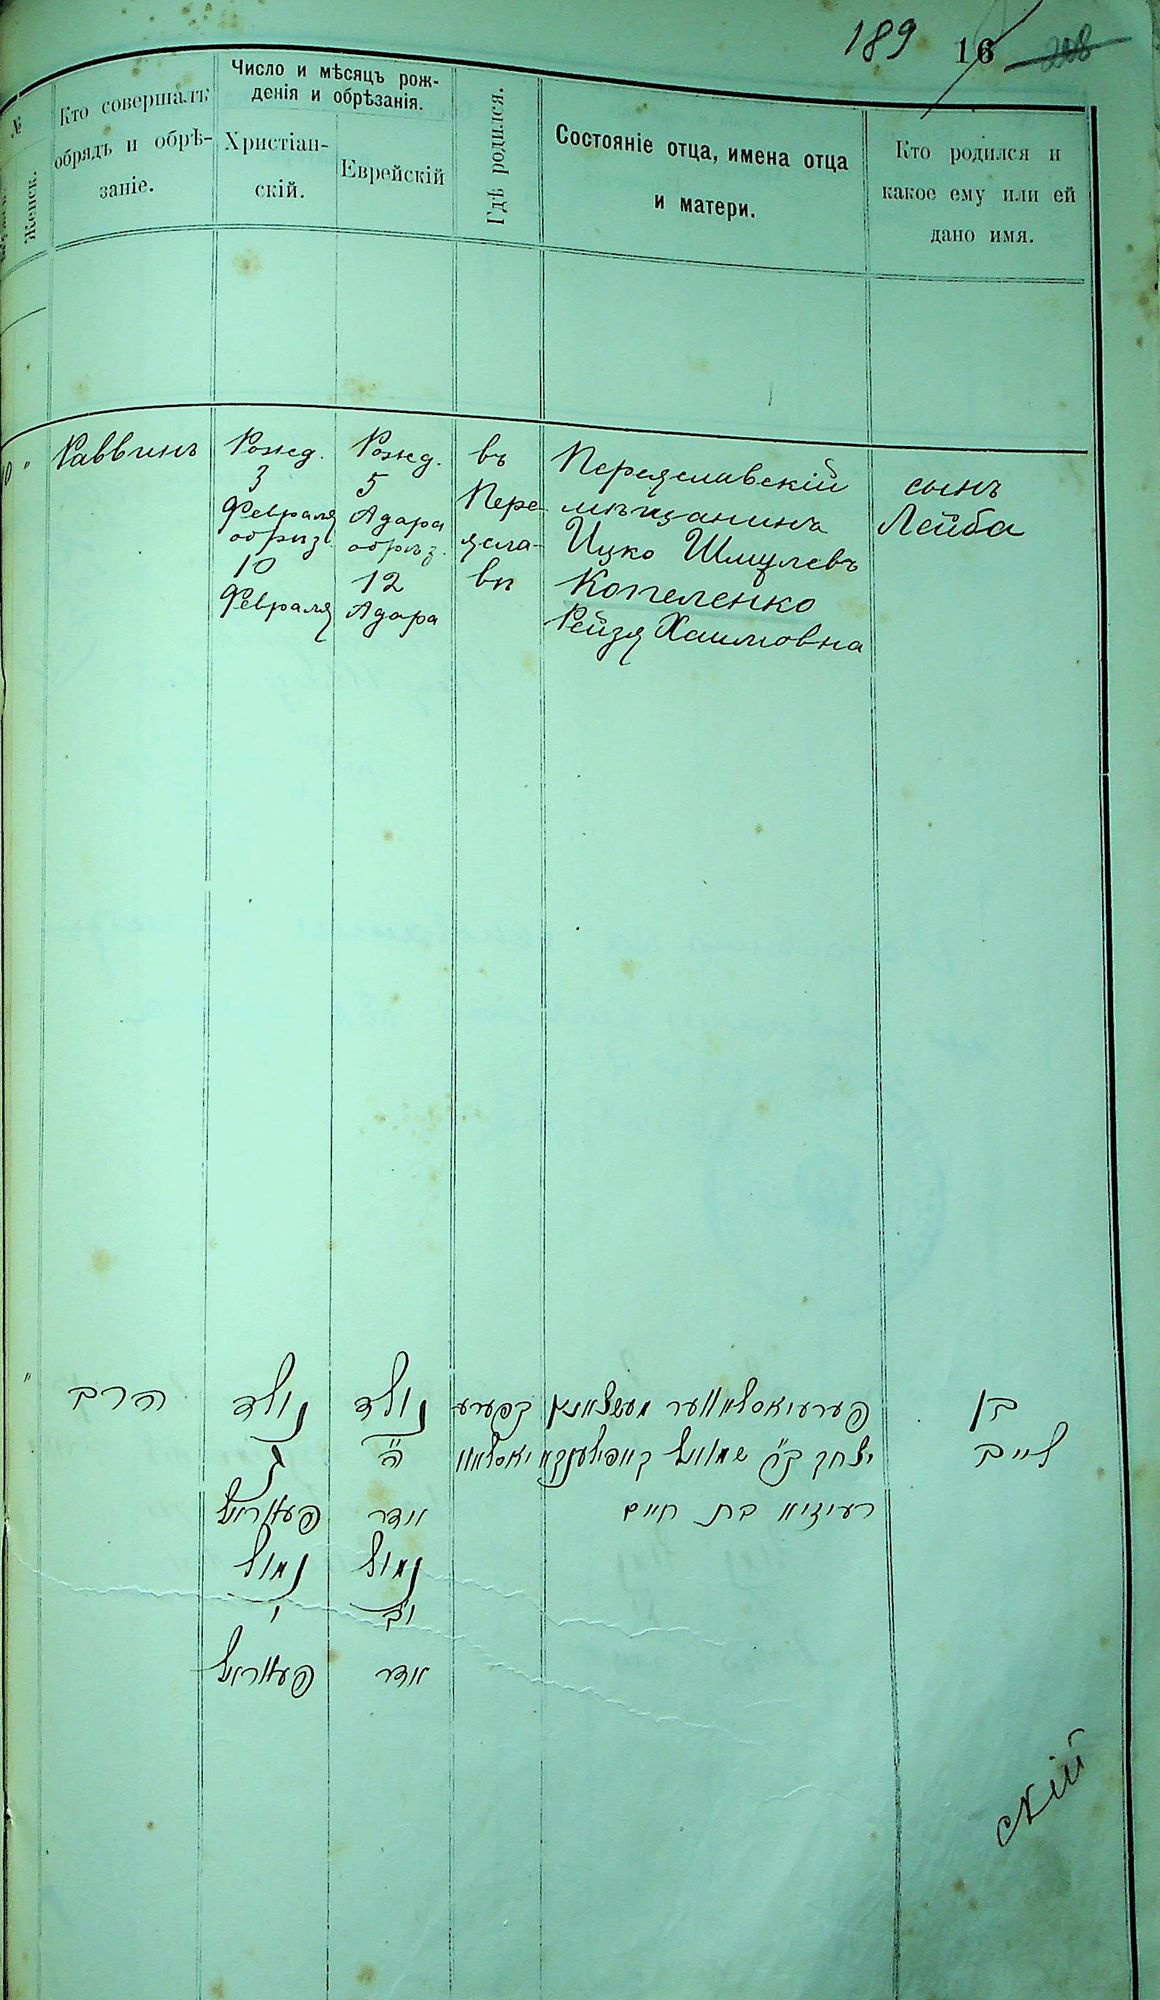 189 16 208
№
Женск.
Кто совершалъ
обрядъ и обрѣ-
заніе.
Число и мѣсяцъ рож-
денія и обрѣзанія.
Христіан-
скій.
Еврейскій
Гдѣ родился.
Состояніе отца, имена отца
и матери.
Кто родился и
какое ему или ей
дано имя.
"
Раввинъ
Рожд.
3
Февраля
обрѣз.
10
Февраля
Рожд.
5
Адара
обрѣз.
12
Адара
въ
Пере-
ясла-
вѣ
Переяславскій
мѣщанинъ
Ицко Шмулевъ
Копеленко
Рейзя Хаимовна
сынъ
Лейба
"
הרב
נולד
ג
פעװראל
נמול
י
פעװראל
נולד
ה'
אדר
נמול
יב
אדר
בפערע
יאסלאוו
פערעיאסלאווער מעשצאנין
יצחק ב"ר שמואל קאפילענקא
רעיזיא בת חיים
בן
לייב
скій